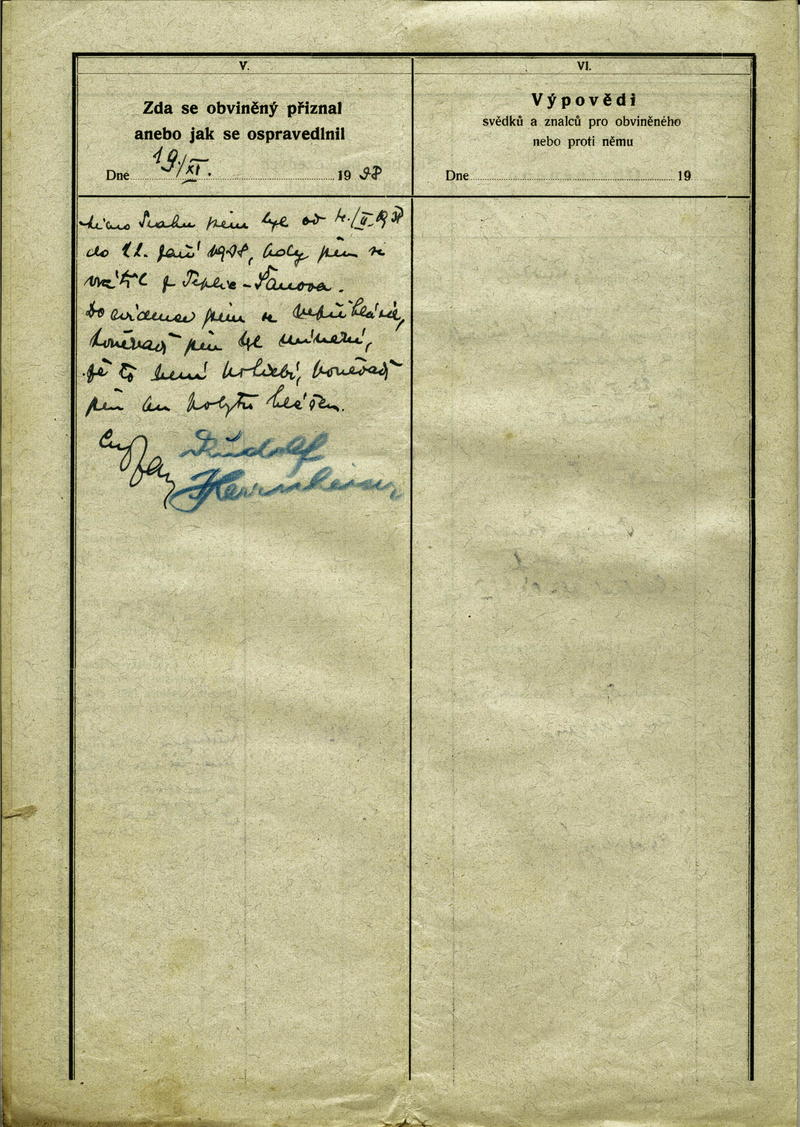 V.
Zda se obviněný přiznal
anebo jak se ospravedlnil
Dne 19/XI. 19 38
Mimo Prahu jsem byl od 4./II. 1938
do 11. září 1938, kdy jsem se
vrátil z Teplic-Šanova.
Do evidence jsem se nepřihlásil,
poněvadž jsem byl mínění,
že to není potřebí, poněvadž
jsem
Rudolf
Herrnheiser
VI.
Výpovědi
svědků a znalců pro obviněného
nebo proti němu
Dne 19